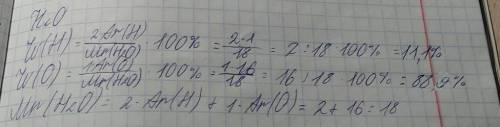 H2O
W(H) = 2Ar(H)/Mr(H2O) 100% = 2·1/18 = 2:18 100% = 11,1%
W(O) = 1Ar(O)/Mr(H2O) 100% = 1·16/18 = 16:18 100% = 88,9%
Mr(H2O) = 2·Ar(H) + 1·Ar(O) = 2 + 16 = 18